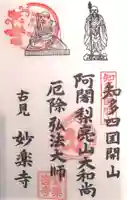 知多四国開山
阿闍梨亮山大和尚
厄除弘法大師
古見 妙楽寺